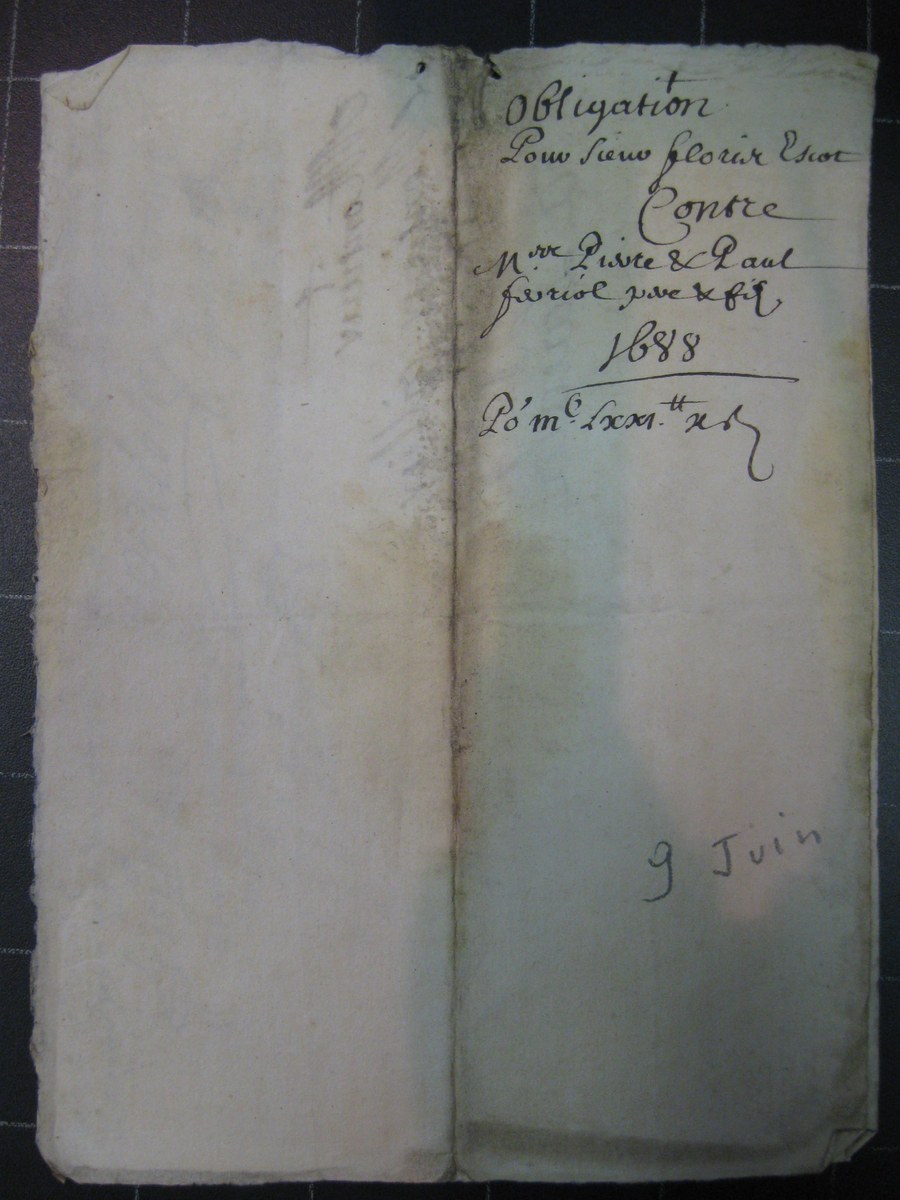 Obligation
Pour Sieur florix Escot
Contre
Mrs Pierre & Paul
fevriol pere & fils
1688
Po mc Lxxi tt x s
9 Juin